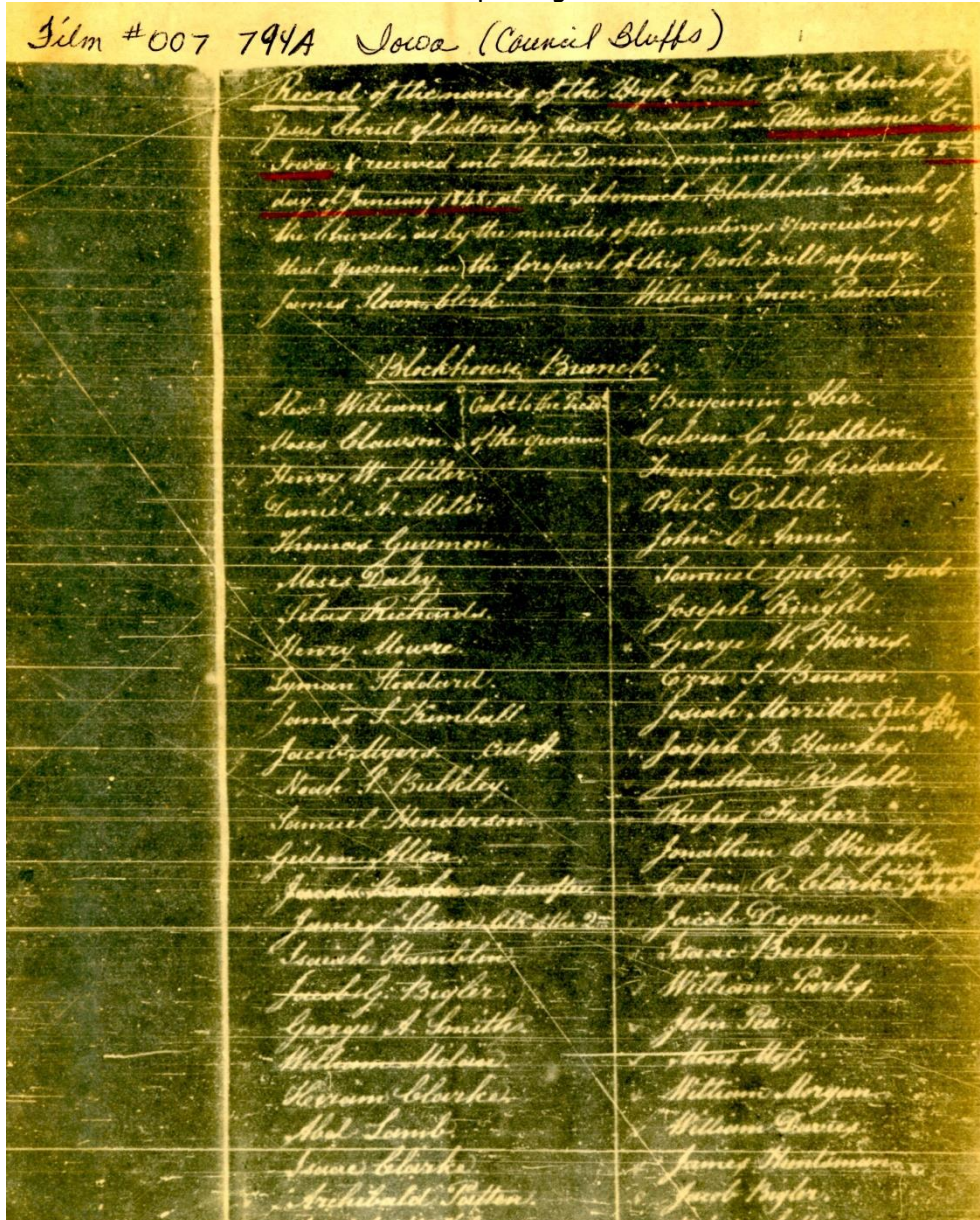 Film #007 794A Iowa (Council Bluffs)
Record of the names of the High Priests of the Church of
Jesus Christ of latterday Saints, resident in Pottawatamie Co
Iowa, & received into that Quorum, commincing upon the
day of January 1848, at the Tabernacle, Blockhouse Branch of
the Church, as by the minutes of the meetings & proceedings of
that quorum, in the forepart of this Book will appear.
James Sloan, Clerk William Snow, President
Blockhouse Branch.
Alexr Williams
Moses Clawson of the quorum
Henry W. Miller
Daniel A. Miller
Thomas Guymon.
Moses Dailey.
Silas Richards.
Henry Mowre.
Lyman Stoddard.
James L. Kimball.
Jacob Myers. Cut off
Noah Bulkley.
Samuel Henderson.
Gideon Allen.
James Sloan, Clk of the
Isaiah Hamblin
Jacob G. Bigler.
George A. Smith.
William
Hiram Clarke.
Abel Lamb.
Isaac Clarke
Archibald Patten.
Benjamin Aber.
Calvin C. Pendleton.
Franklin D. Richards.
Philo Dibble.
John C. Annis.
Samuel Gully. Dead
Joseph Knight.
George W. Harris.
Ezra T. Benson.
Josiah Merritt. Cut off
Joseph B. Hawkes.
Jonathan Russell.
Rufus Fisher.
Jonathan C. Wright.
Calvin R. Clarke
Jacob Degraw.
Isaac Beebe
William Parks.
John Pea.
Moses Moss.
William Morgan
William Davies.
James Huntsman
Jacob Bigler.